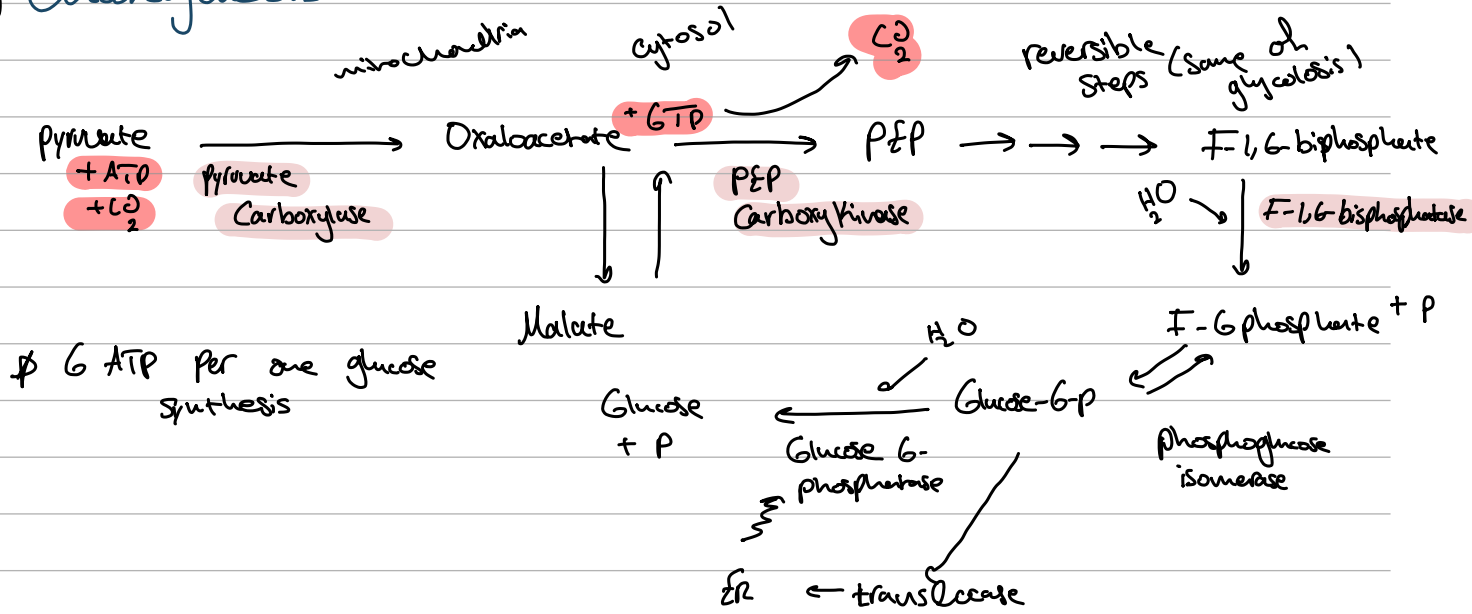 mitochondria
cytosol
CO2
reversible steps (same of glycolosis)
Pyruvate
+ ATP
+ CO2
Pyruvate
Carboxylase
Oxaloacetate + GTP
PEP
Carboxykinase
PEP
F-1,6-biphosphate
H2O
F-1,6-bisphosphatase
Malate
F-6phosphate + P
6 ATP per one glucose
synthesis
H2O
Glucose
+ P
Glucose-6-P
Glucose 6-
phosphatase
phosphoglucose
isomerase
ER
translocase